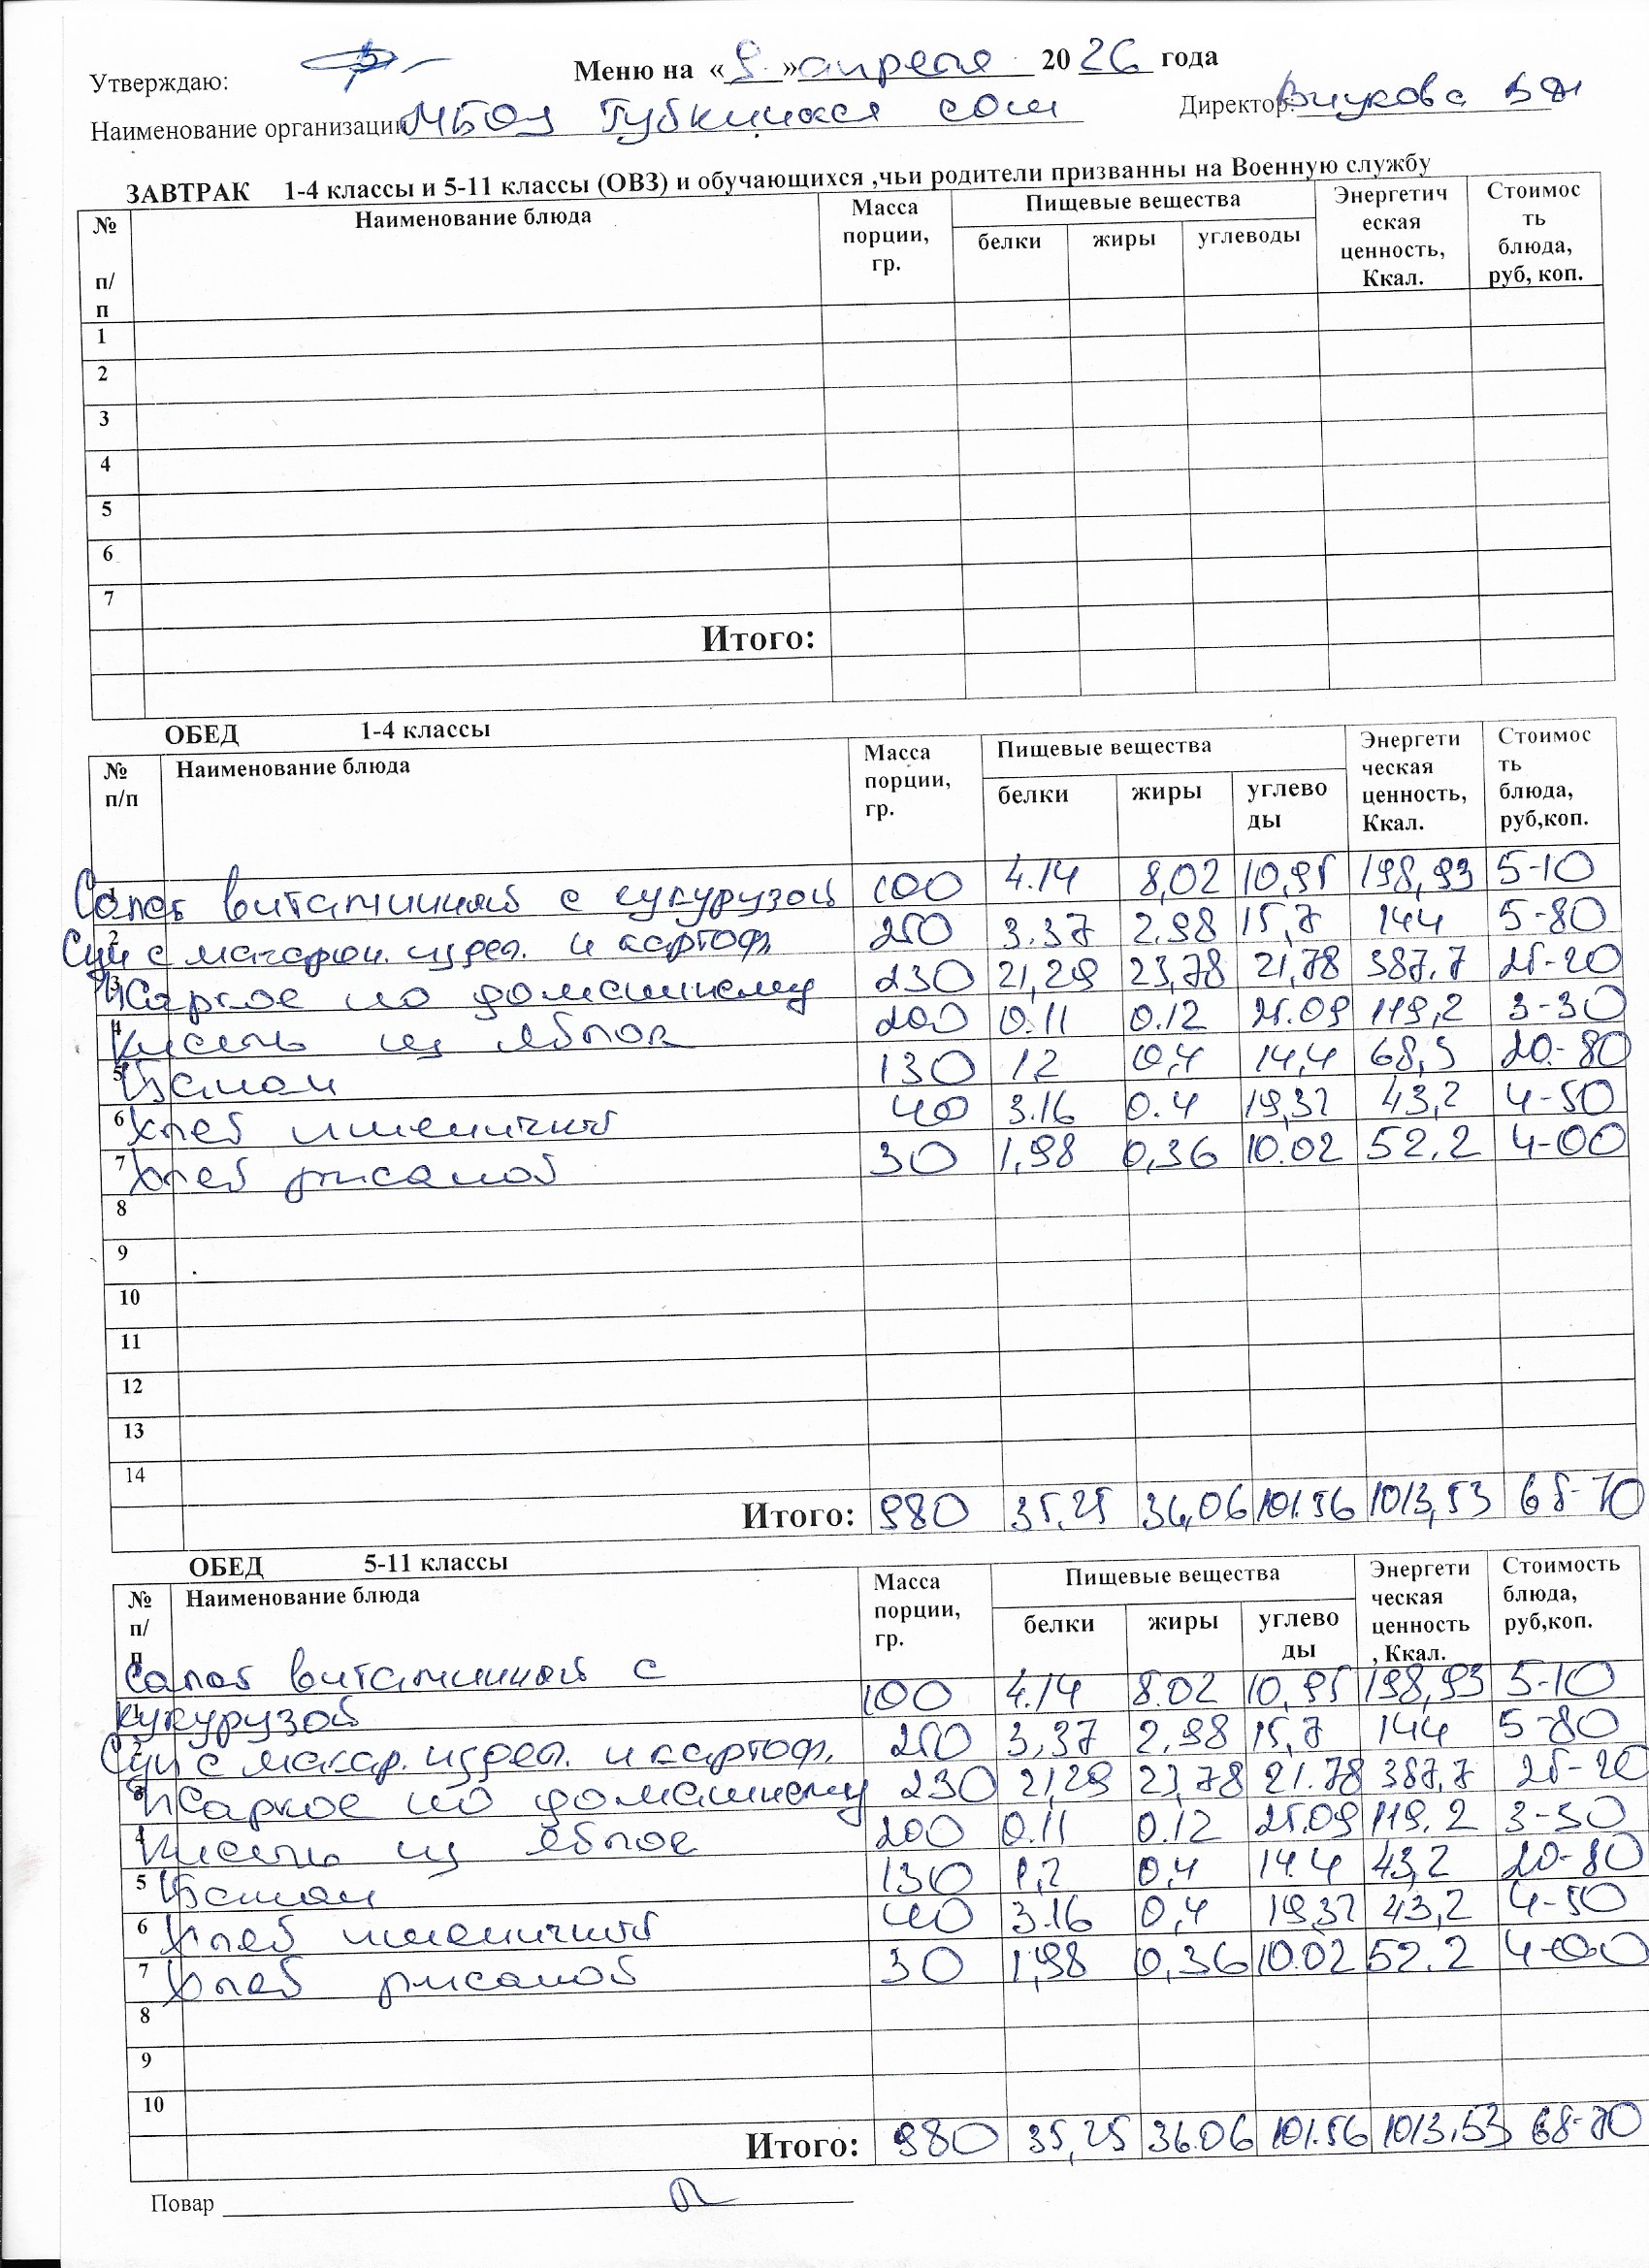 Утверждаю:
Меню на « 9 » апреля 2026 года
Наименование организации МБОУ Губкинская сош Директор:
ЗАВТРАК 1-4 классы и 5-11 классы (ОВЗ) и обучающихся ,чьи родители призванны на Военную службу
№ п/п Наименование блюда Масса порции, гр. Пищевые вещества Энергетическая ценность, Ккал. Стоимость блюда, руб, коп.
белки жиры углеводы
1
2
3
4
5
6
7
Итого:
ОБЕД 1-4 классы
№ п/п Наименование блюда Масса порции, гр. Пищевые вещества Энергетическая ценность, Ккал. Стоимость блюда, руб,коп.
белки жиры углеводы
1 Салат витаминный с кукурузой 100 4.14 8,02 10,95 198,93 5-10
2 Суп с макарон. издел. и картоф. 250 3.37 2.98 15,7 144 5-80
3 Жаркое по домашнему 230 21,29 23,78 21,78 387,7 25-20
4 Кисель из яблок 200 0.11 0.12 25.09 119,2 3-30
5 Банан 130 1,2 0,4 14,4 68,5 20-80
6 Хлеб пшеничный 40 3.16 0.4 19,32 43,2 4-50
7 Хлеб ржаной 30 1,98 0,36 10.02 52.2 4-00
8
9
10
11
12
13
14
Итого: 980 35.25 36,06 101.56 1013,53 68-70
ОБЕД 5-11 классы
№ п/п Наименование блюда Масса порции, гр. Пищевые вещества Энергетическая ценность, Ккал. Стоимость блюда, руб,коп.
белки жиры углеводы
Салат витаминный с
1 кукурузой 100 4.14 8.02 10,95 198,93 5-10
2 Суп с макар. издел. и картоф. 250 3,37 2,98 15,7 144 5-80
3 Жаркое по домашнему 230 21,29 23,78 21.78 387,7 25-20
4 Кисель из яблок 200 0.11 0.12 25.09 119.2 3-30
5 Банан 130 1,2 0,4 14.4 43,2 20-80
6 Хлеб пшеничный 40 3.16 0,4 19,32 43,2 4-50
7 Хлеб ржаной 30 1,98 0,36 10.02 52.2 4-00
8
9
10
Итого: 980 35,25 36.06 101.56 1013.53 68-70
Повар